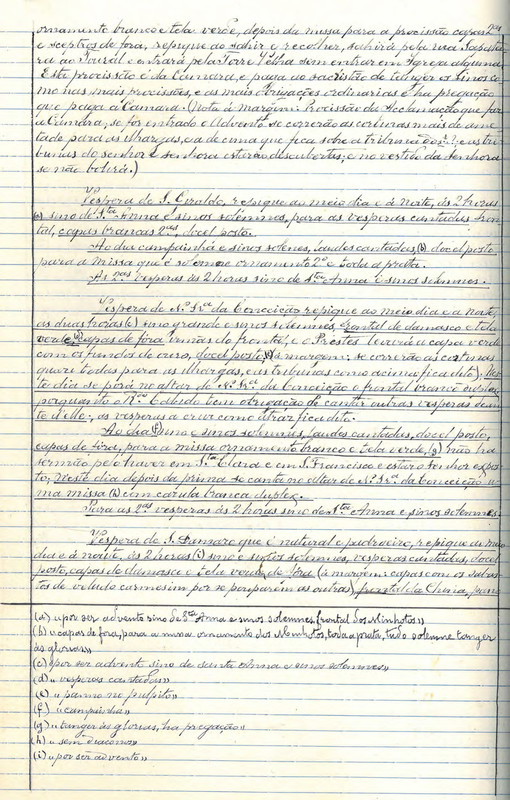 ornamento branco e tela verde, depois da missa para a procissão capas
e sceptros de fora, repique ao sahir e recolher, sahirá pela rua Sapatei
ra ao Toural e entrará pela Torre Velha sem entrar em Igreja alguma.
Esta procissão é da Camara, e paga ao sacristão de tanger os sinos co
mo nas mais procissões, e as mais obrigações ordinarias e ha pregação
que paga a Camara. (Nota á margem: Procissão da Acclamação que faz
a Camara, se fôr entrado o Advento se correrão as cortinas mais de ame
tade para as ilhargas, e a de cima que fica sobre a tribuna e as tri
bunas do senhor e senhora estarão descubertas; e no vestido da senhora
se não bolirá.)
Vespora de S. Giraldo, repique ao meio dia e á noite, ás 2 horas
(a) sino de S.ta Anna e sinos solemnes, para as vesperas cantadas fron
tal, capas brancas 2.as, docel posto.
Ao dia campainha e sinos solenes, laudes cantadas, (b) docel posto
para a missa que é solemne ornamento 2.º e toda a prata.
As 2.as vesperas ás 2 horas sino de S.ta Anna e sinos solemnes.
Vespora de N.ª Sr.ª da Conceição repique ao meio dia e á noite,
as duas horas (c) sino grande e sinos solemnes, frontal de damasco e tela
verde, (d) capas de fóra irmãs do frontal, e o Prestes levará a capa verde
com os fundos de ouro, docel posto, (e) (á margem: se correrão as cortinas
quasi todas para as ilhargas, e as tribunas como acima fica dito). Nes
te dia se porá no altar de N.ª Sr.ª da Conceição o frontal branco
porquanto o R.do Cabido tem obrigação de cantar outras vesperas dean
te d'elle, as vesperas a cruz como atraz fica dito.
Ao dia (f) sino e sinos solemnes, laudes cantadas, docel posto,
capas de fóra, para a missa ornamento branco e tela verde, (g) não ha
sermão pelo haver em S.ta Clara e em S. Francisco e estar o Senhor expos
to, neste dia depois da prima se canta no altar de N.ª Sr.ª da Conceição u
ma missa (h) em cárula branca duplex.
Para as 2.as vesperas ás 2 horas sino de S.ta Anna e sinos solemnes.
Vespera de S. Damaso que é natural e padroeiro, repique ao meio
dia e á noite, ás 2 horas (i) sino e sinos solemnes, vesperas cantadas, docel
posto, capas de damasco e tela verde de fóra (á margem: capas com os
tos de veludo carmesim por se pouparem as outras), frontal da China, pano
(a) «por ser advento sino de S.ta Anna e sinos solemnes, frontal dos Minhotos»
(b) «capas de fora, para a missa ornamento dos Minhotos, toda a prata, tudo solemne tanger
ás glorias»
(c) «por ser advento sino de santa Anna e sinos solemnes»
(d) «vesperas cantadas»
(e) «panno no pulpito»
(f) «campainha»
(g) «tanger ás glorias, ha pregação»
(h) «sem diaconos»
(i) «por ser advento»